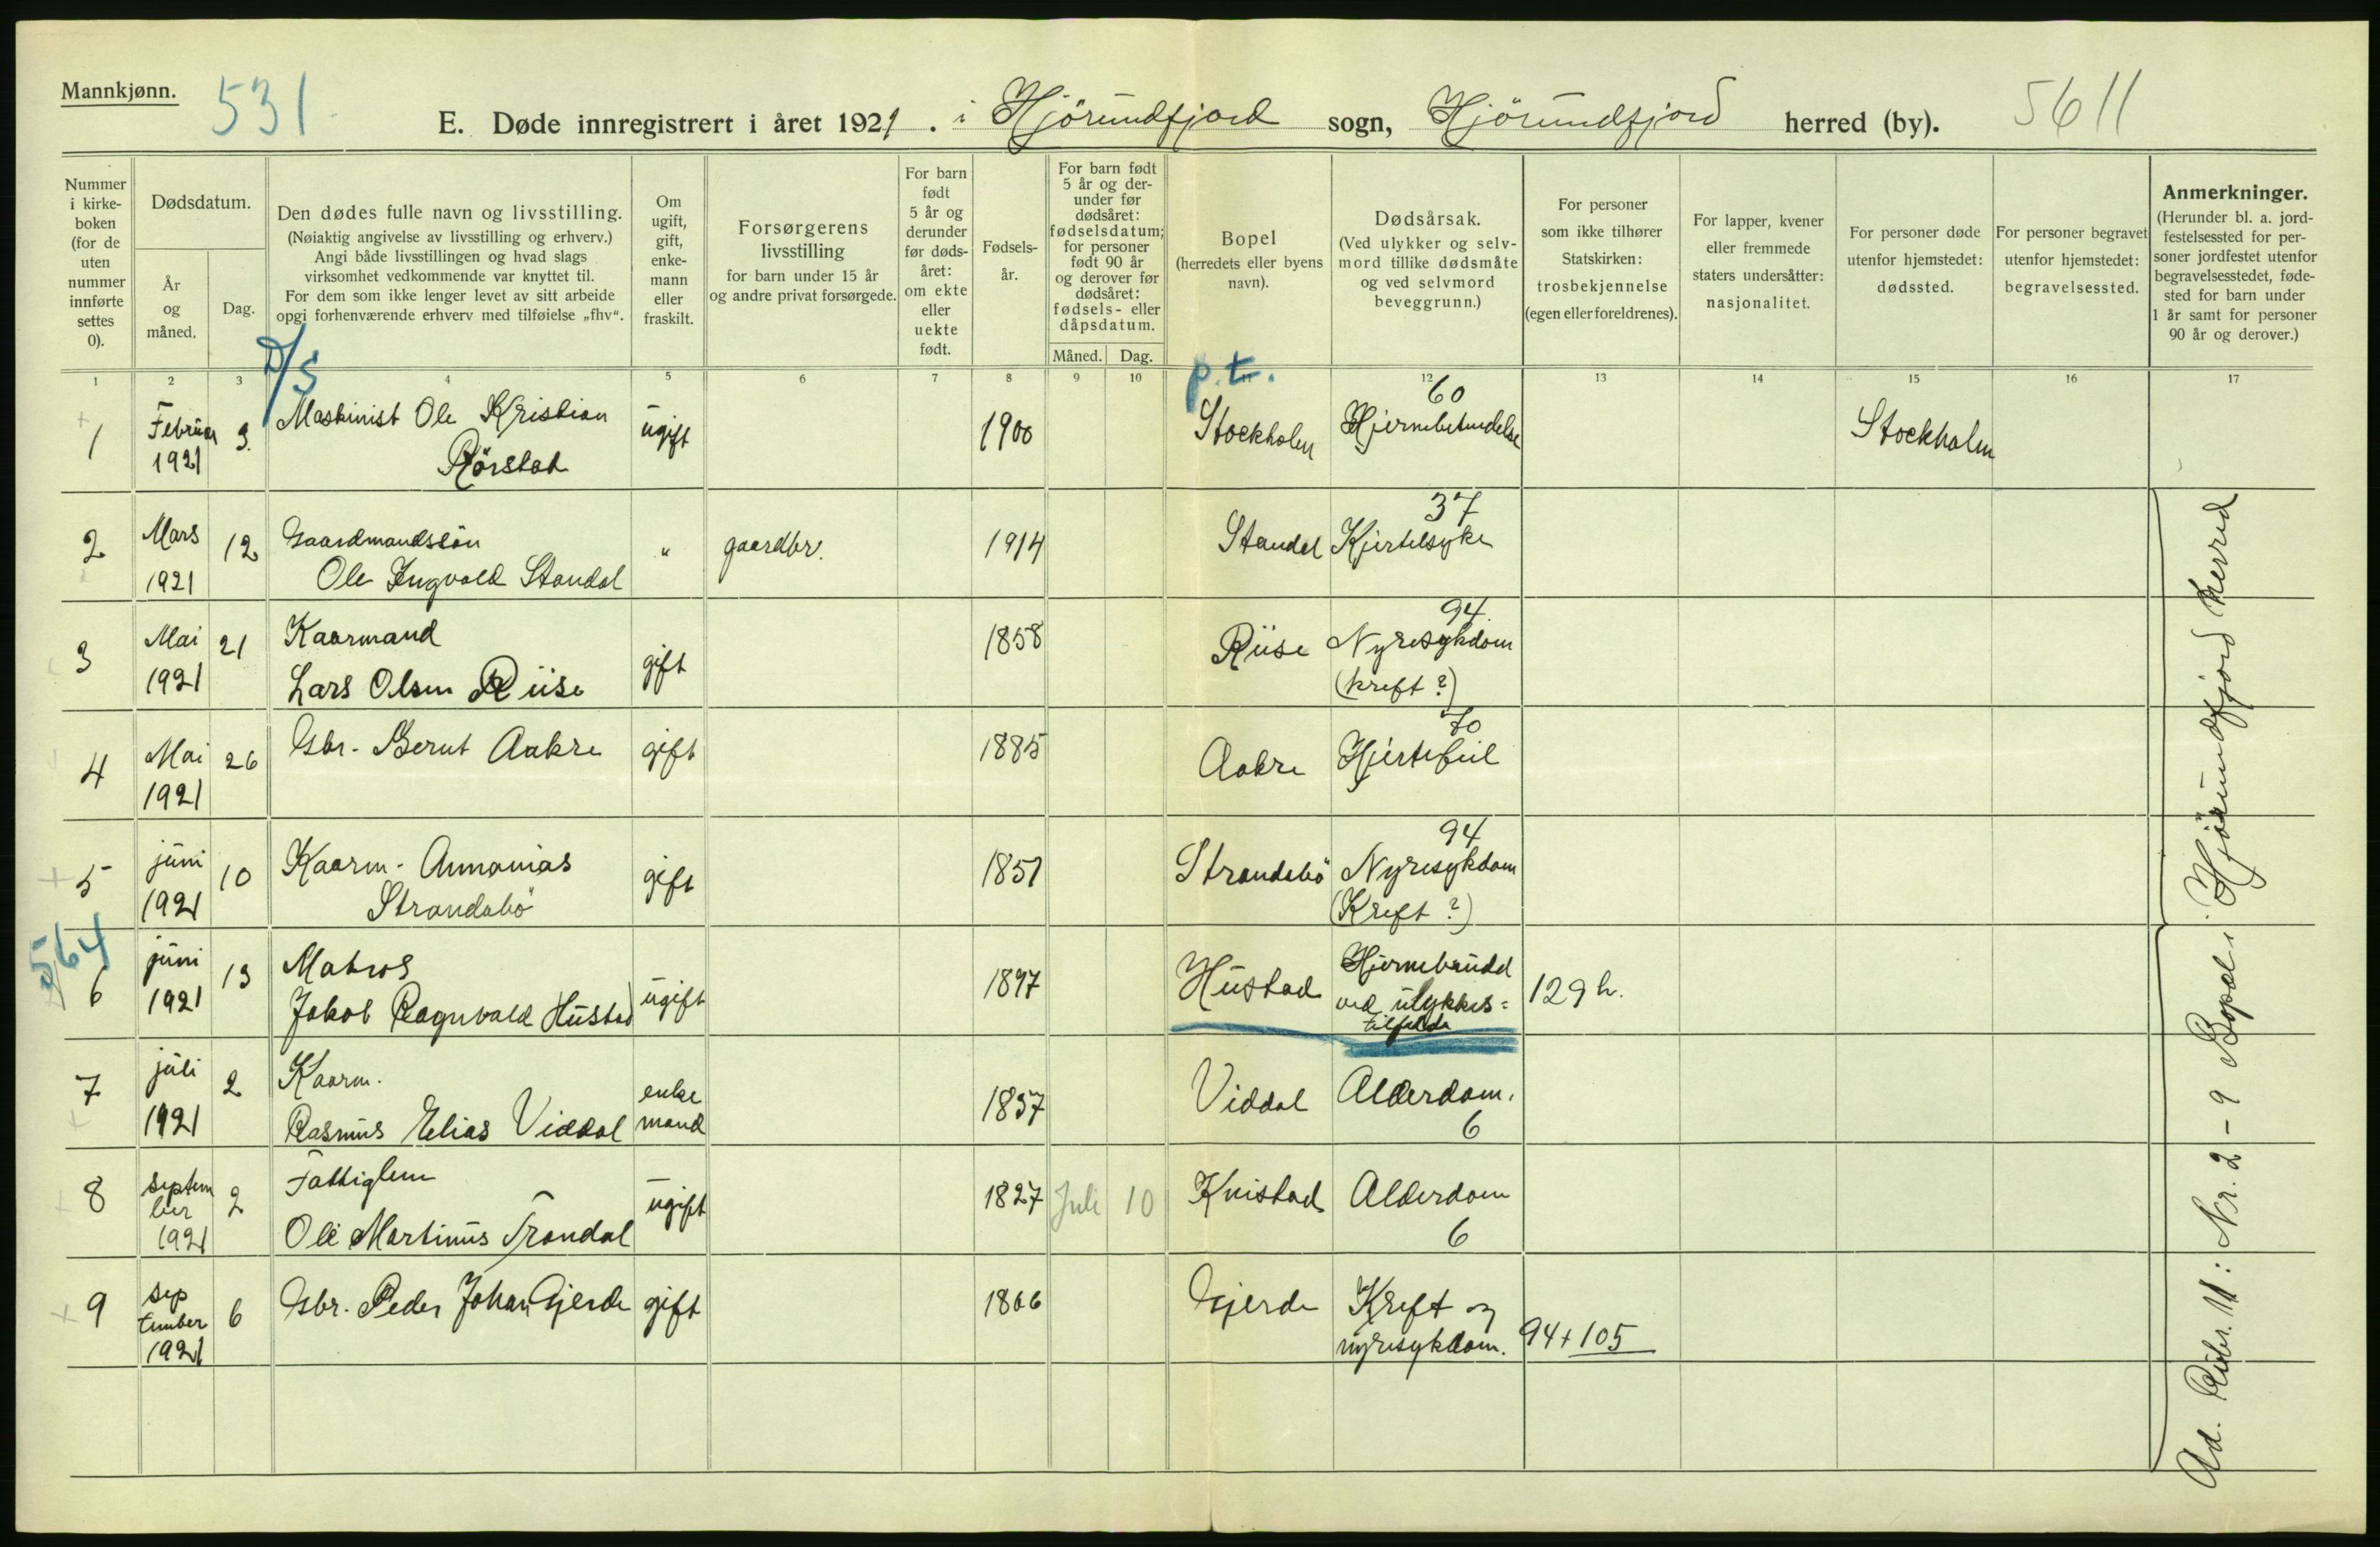 Mannkjønn.
531
E. Døde innregistrert i året 1921. i Hjörundfjord sogn, Hjörundfjord herred (by).
5611
Nummer i kirkeboken (for de uten nummer innførte settes 0).
Dødsdatum.
År og måned.
Dag.
Den dødes fulle navn og livsstilling.
(Nøiaktig angivelse av livsstilling og erhverv.)
Angi både livsstillingen og hvad slags
virksomhet vedkommende var knyttet til.
For dem som ikke lenger levet av sitt arbeide
opgi forhenværende erhverv med tilføielse „fhv“.
Om ugift, gift, enkemann eller fraskilt.
Forsørgerens livsstilling
for barn under 15 år
og andre privat forsørgede.
For barn født 5 år og derunder før dødsåret: om ekte eller uekte født.
Fødselsår.
For barn født 5 år og derunder før dødsåret: fødselsdatum; for personer født 90 år og derover før dødsåret: fødsels- eller dåpsdatum.
Måned. Dag.
Bopel
(herredets eller byens navn).
Dødsårsak.
(Ved ulykker og selvmord tillike dødsmåte og ved selvmord beveggrunn.)
For personer som ikke tilhører Statskirken: trosbekjennelse (egen eller foreldrenes).
For lapper, kvener eller fremmede staters undersåtter: nasjonalitet.
For personer døde utenfor hjemstedet: dødssted.
For personer begravet utenfor hjemstedet: begravelsessted.
Anmerkninger.
(Herunder bl. a. jordfestelsessted for personer jordfestet utenfor begravelsesstedet, fødested for barn under 1 år samt for personer 90 år og derover.)
1 2 3 4 5 6 7 8 9 10 11 12 13 14 15 16 17
D/S p.t. 60
1 Februar 1921 3. Maskinist Ole Kristian Rörstad ugift 1900 Stockholm Hjernebetendelse Stockholm
37
2 Mars 1921 12 Gaardmandssön Ole Ingvald Standal " gaardbr. 1914 Standal Kjertelsyke
94
3 Mai 1921 21 Kaarmand Lars Olsen Riise gift 1858 Riise Nyresykdom (kreft?)
70
4 Mai 1921 26 Gbr. Bernt Aakre gift 1885 Aakre Hjertefeil
94
5 juni 1921 10 Kaarm. Annanias Strandabö gift 1851 Strandabö Nyresykdom (Kreft?)
564
6 juni 1921 13 Matros Jakob Ragnvald Hustad ugift 1897 Hustad Hjernebrudd ved ulykkestilfelde 129 h.
7 juli 1921 2 Kaarm. Rasmus Elias Viddal enkemand 1837 Viddal Alderdom. 6
8 september 1921 2 Fattiglem Ole Martinus Trandal ugift 1827 Juli 10 Knistad Alderdom 6
9 september 1921 6 Gbr. Peder Johan Gjerde gift 1866 Gjerde Kreft og nyresykdom. 94+105
Ad. Rubr. 11: Nr. 2-9 Bopel i Hjörundfjord herred